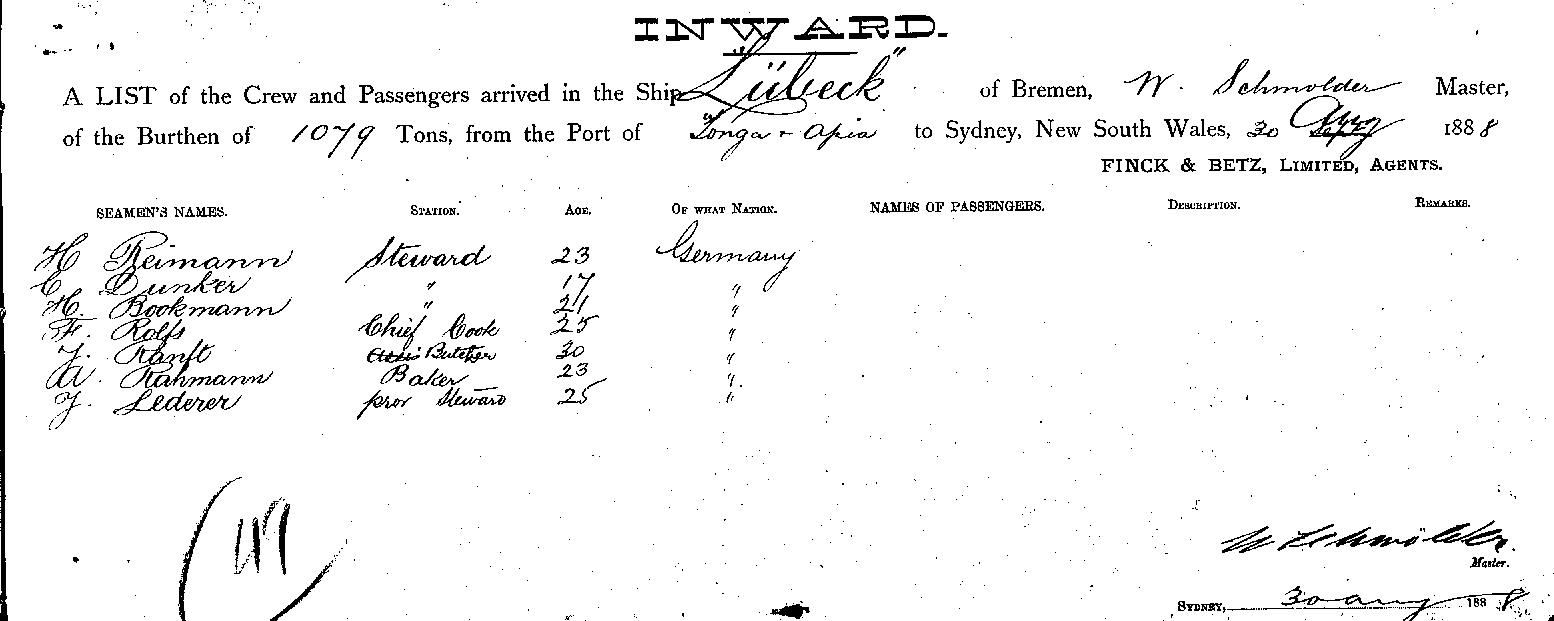 INWARD.
A LIST of the Crew and Passengers arrived in the Ship "Lübeck" of Bremen, W. Schmölder Master,
of the Burthen of 1079 Tons, from the Port of Tonga + Apia to Sydney, New South Wales, 30 Aug 1888
FINCK & BETZ, LIMITED, AGENTS.
SEAMEN'S NAMES. STATION. AGE. OF WHAT NATION. NAMES OF PASSENGERS. DESCRIPTION. REMARKS.
H Reimann Steward 23 Germany
C. Dunker " 17 "
H. Bookmann " 21 "
F. Rolfs Chief Cook 25 "
J. Ranft Butcher 30 "
A. Rahmann Baker 23 "
J. Lederer prov Steward 25 "
W Schmölder.
Master.
SYDNEY, 30 aug 1888